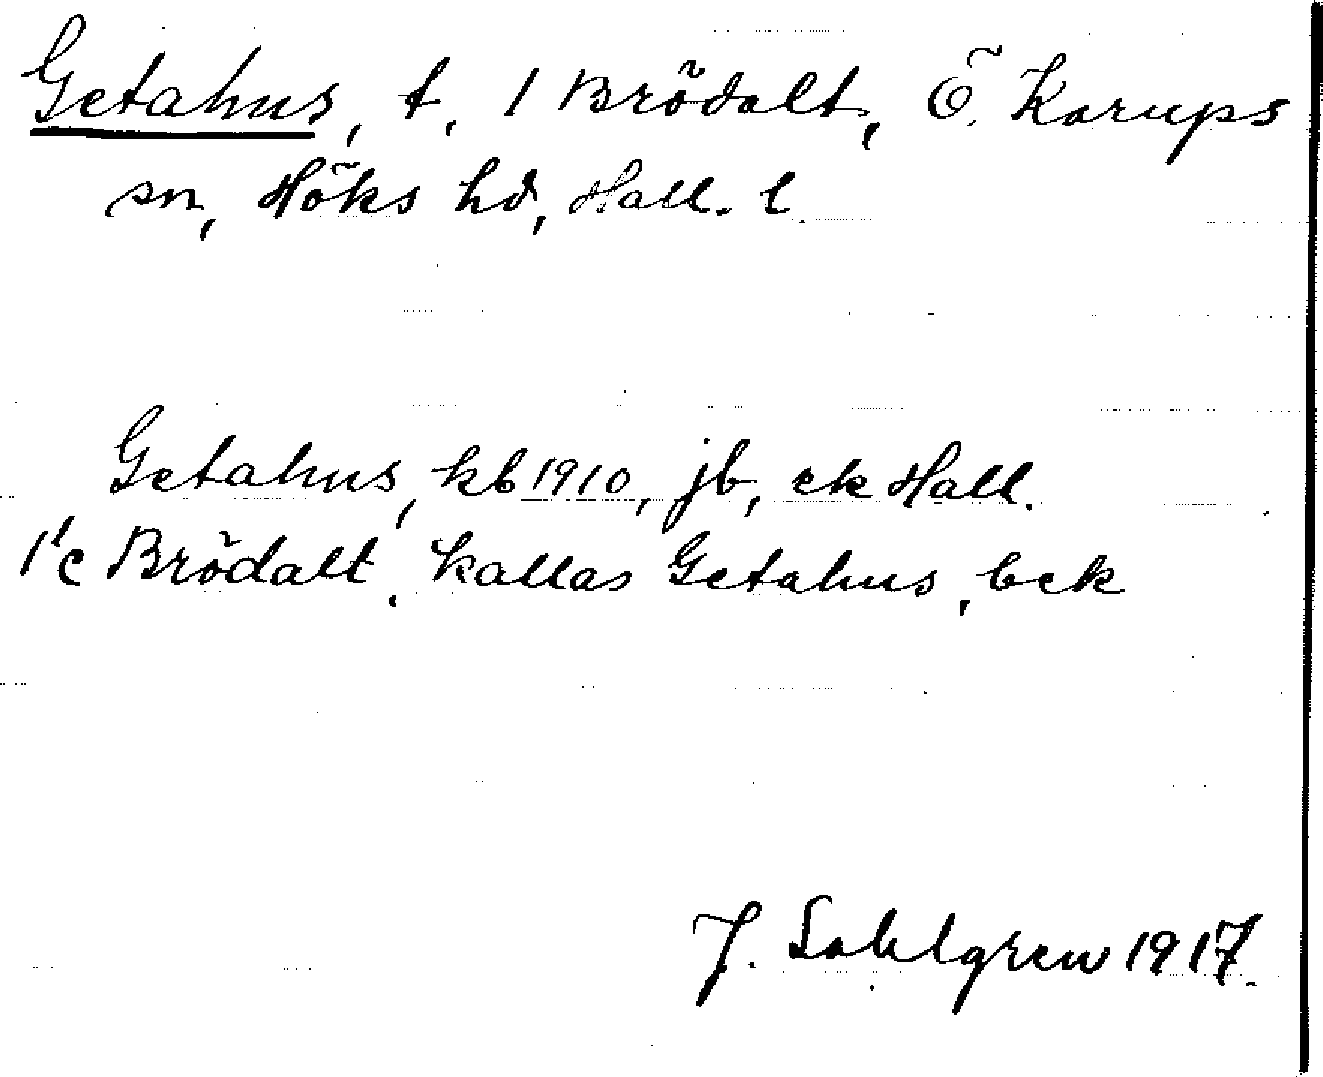 Getahus, t, 1 Brödalt, Ö. Karups
sn, Höks hd, Hall. l.
Getahus, kb 1910, jb, ek Hall.
1¹c Brödalt, kallas Getahus, bek
J. Sahlgren 1917.